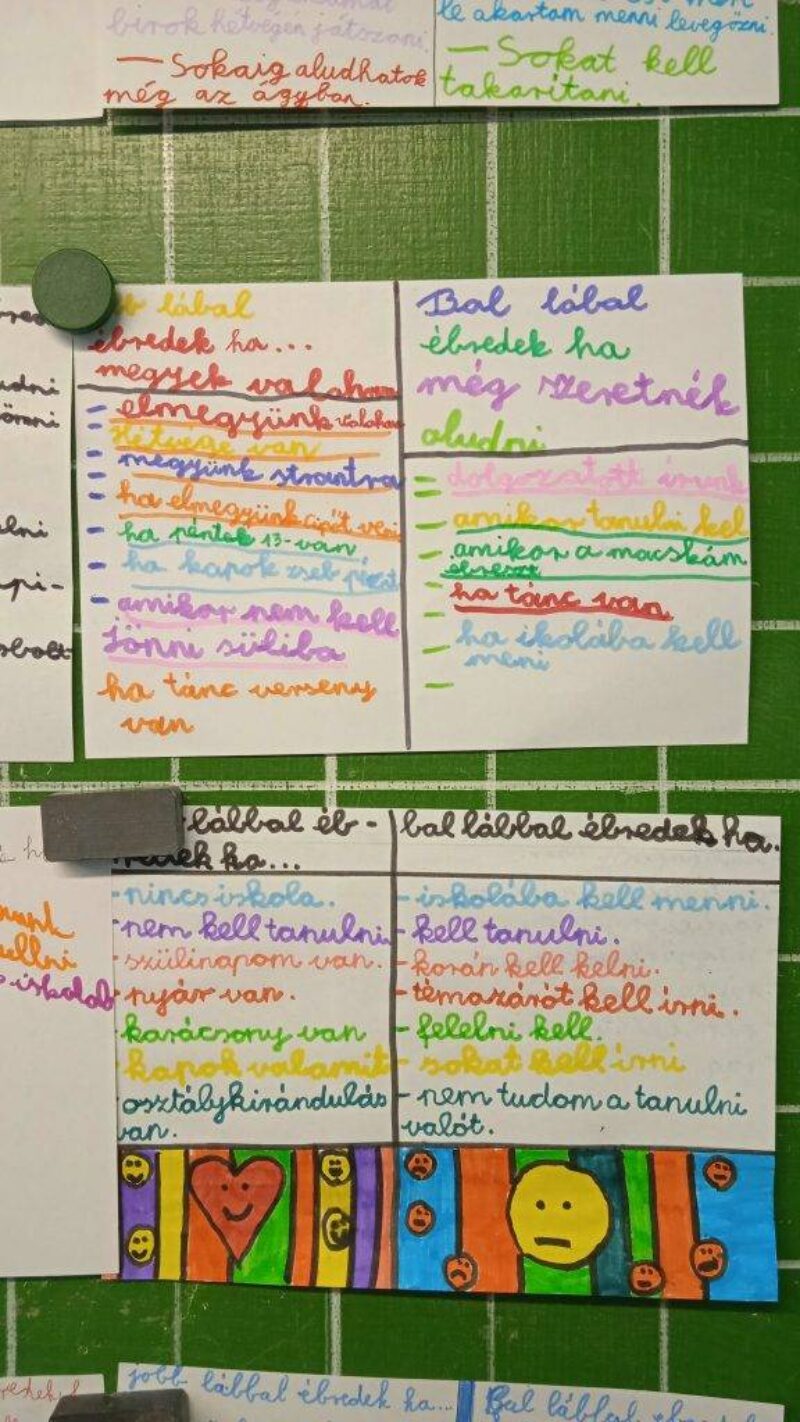 birok hétvégén játszani.
— Sokáig aludhatok
még az ágyban.
le akartam menni levegőzni.
— Sokat kell
takarítani.
lábal
ébredek ha...
megyek valahova
- elmegyünk valahova
- Hétvége van
- megyünk strantra
- ha elmegyünk cipőt veni
- ha péntek 13-van
- ha kapok zseb pézt
- amikor nem kell
jönni suliba
ha tánc verseny
van
Bal lábal
ébredek ha
még szeretnék
aludni
- dolgozatott irunk
- amikor tanulni kel
- amikor a macskám
ébreszt
- ha tánc van
- ha ikolába kell
meni
-
lábbal éb-
redek ha...
- nincs iskola.
- nem kell tanulni.
- szülinapom van.
- nyár van.
karácsony van
- kapok valamit
osztálykirándulás
van.
bal lábbal ébredek ha.
- iskolába kell menni.
- kell tanulni.
- korán kell kelni.
- témazárót kell írni.
- felelni kell.
- sokat kell írni
- nem tudom a tanulni
valót.
jobb lábbal ébredek ha...
Bal lábbal